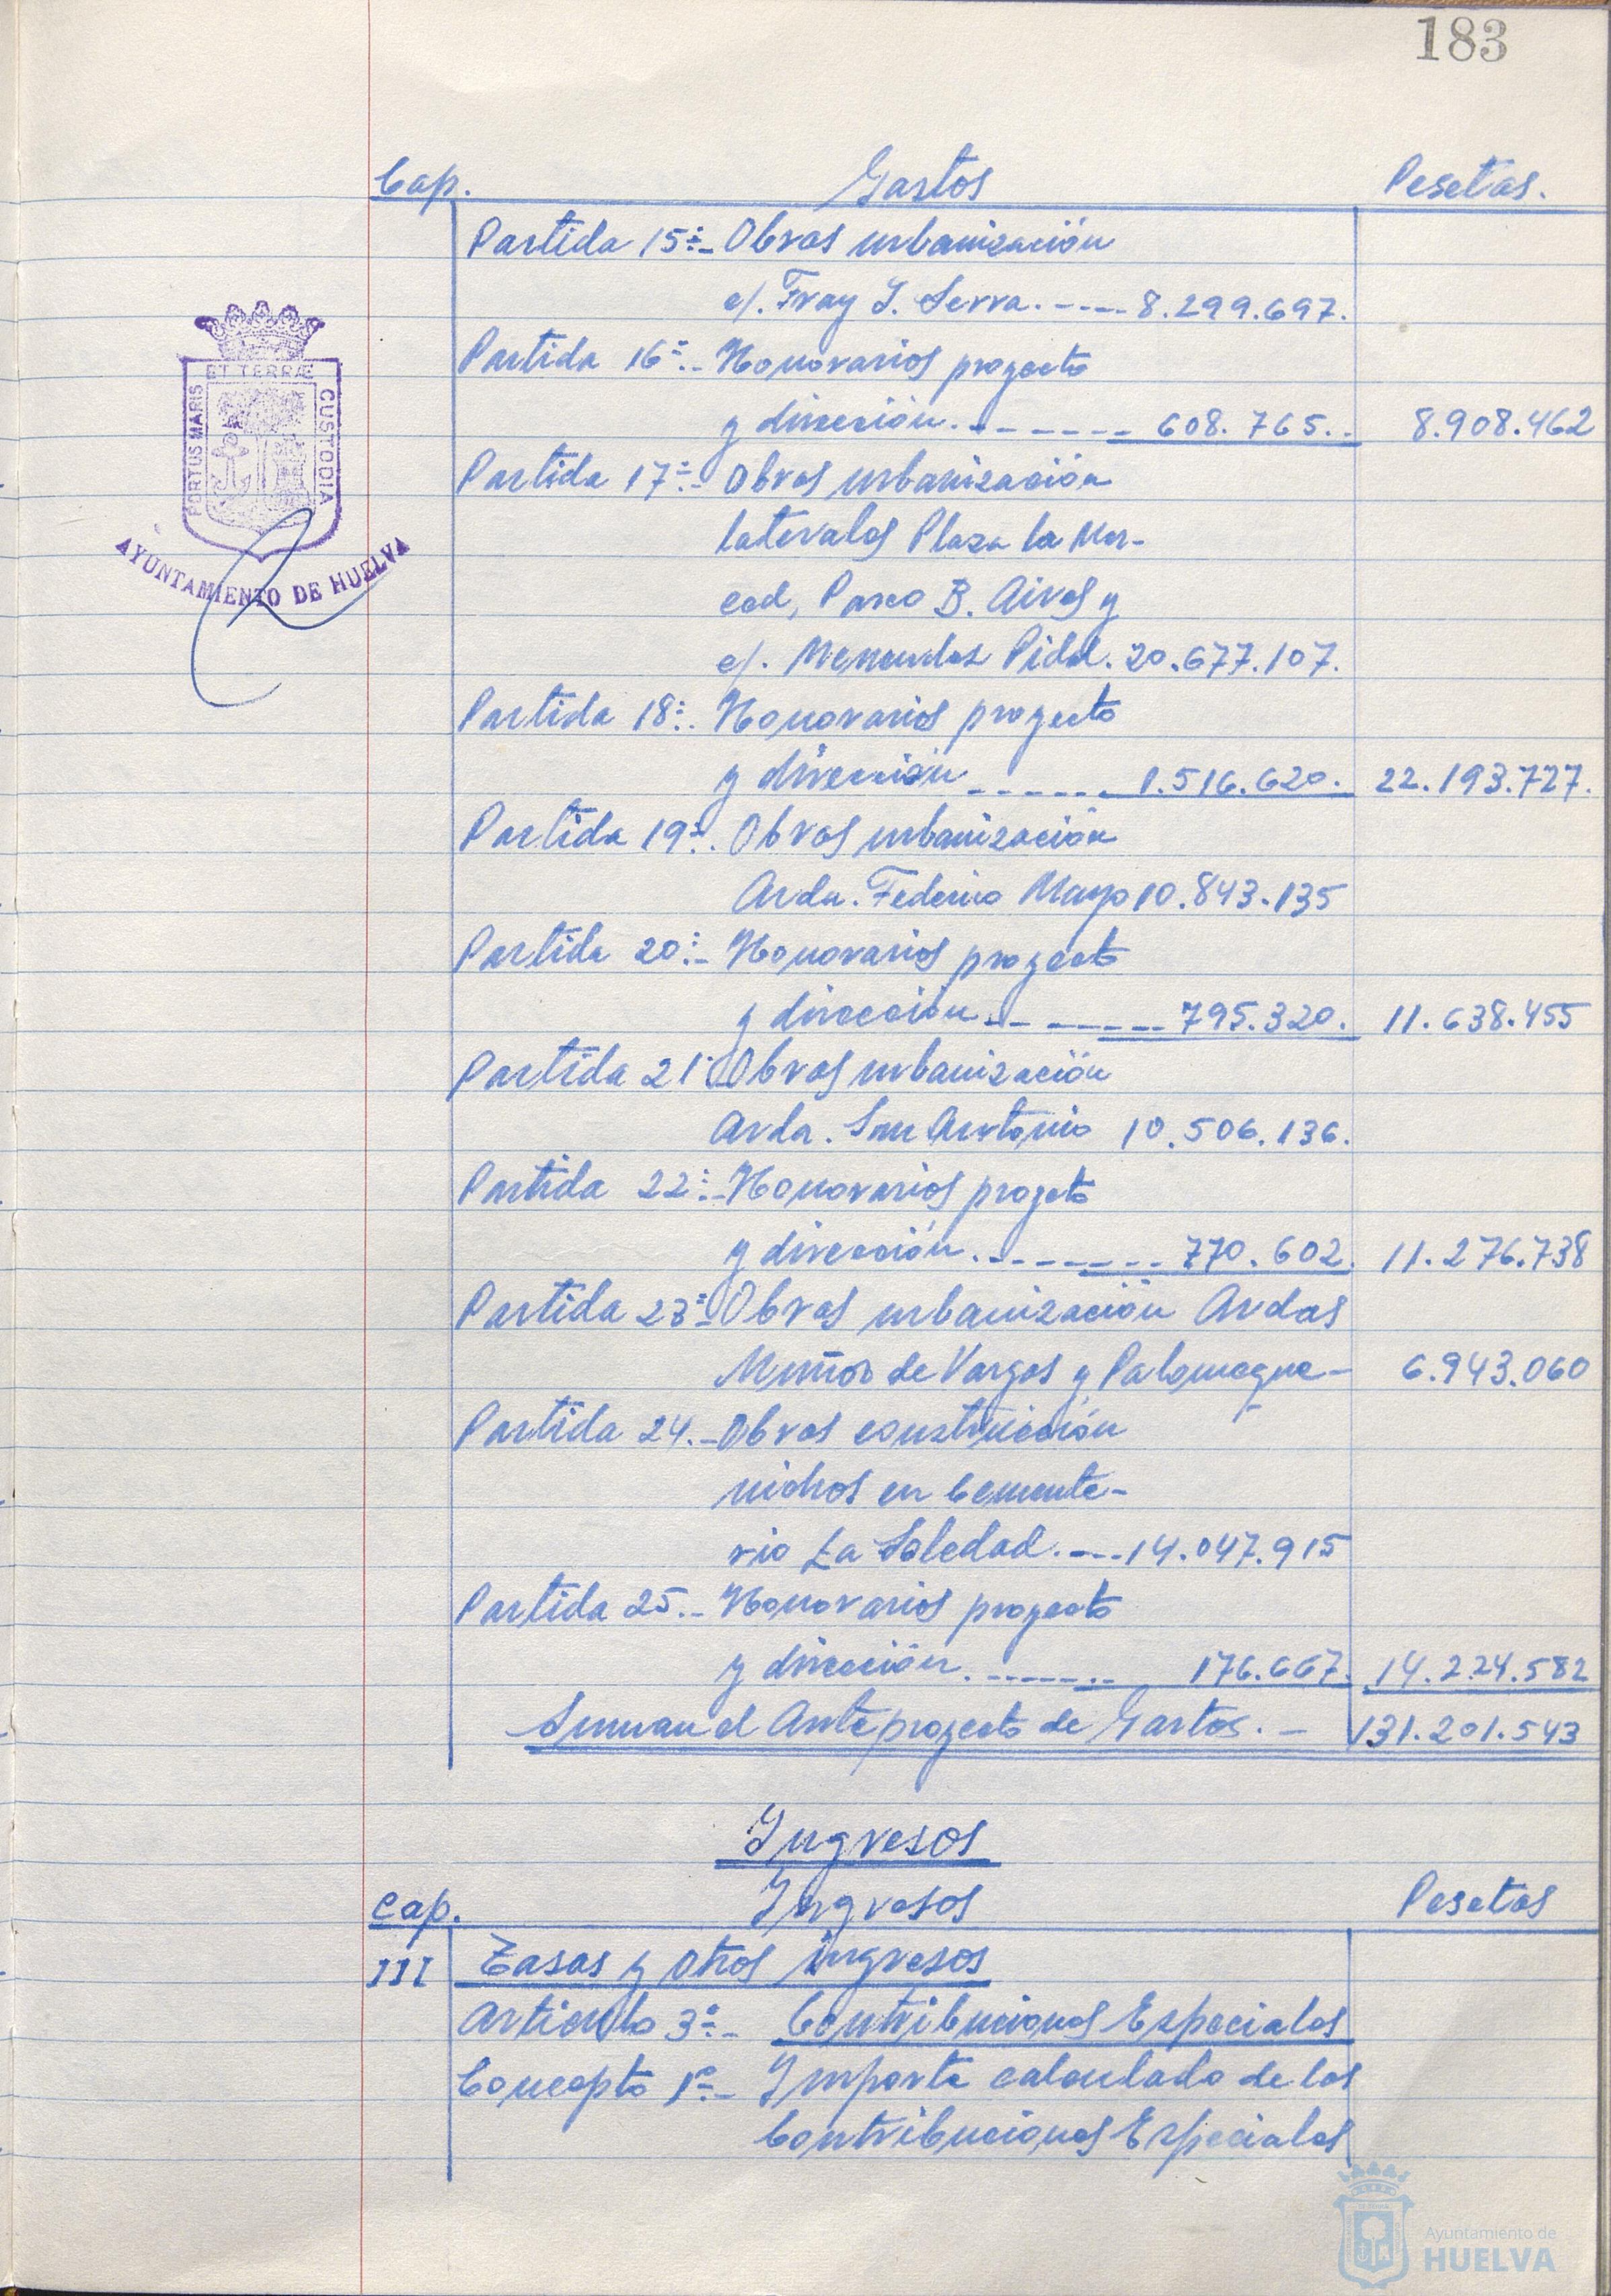 183
Cap. Gastos Pesetas.
Partida 15ª.- Obras urbanización
c/. Fray J. Serra.---- 8.299.697.
Partida 16ª.- Honorarios proyecto
y dirección.------- 608.765.. 8.908.462
Partida 17ª.- Obras urbanización
laterales Plaza la Mer-
ced, Paseo B. Aires y
c/. Menendez Pidal. 20.677.107.
Partida 18ª.. Honorarios proyecto
y dirección ------ 1.516.620. 22.193.727.
Partida 19ª.. Obras urbanización
Avda. Federico Mayo 10.843.135
Partida 20ª.- Honorarios proyecto
y dirección.------- 795.320. 11.638.455
Partida 21ª.- Obras urbanización
Avda. San Antonio 10.506.136.
Partida 22ª.- Honorarios proyeto
y dirección.-------- 770.602. 11.276.738
Partida 23ª.- Obras urbanización Avdas
Muñoz de Vargas y Palomeque- 6.943.060
Partida 24.- Obras construcción
nichos en Cemente-
rio La Soledad.---14.047.915
Partida 25.- Honorarios proyecto
y dirección.------- 176.667. 14.224.582
Suman el Anteproyecto de Gastos. - 131.201.543
Ingresos
Cap. Ingresos Pesetas
III Tasas y otros ingresos
Articulo 3º.- Contribuciones Especiales
Concepto 1º.- Importe calculado de las
Contribuciones Especiales
PORTUS MARIS ET TERRÆ CUSTODIA
AYUNTAMIENTO DE HUELVA
Ayuntamiento de
HUELVA